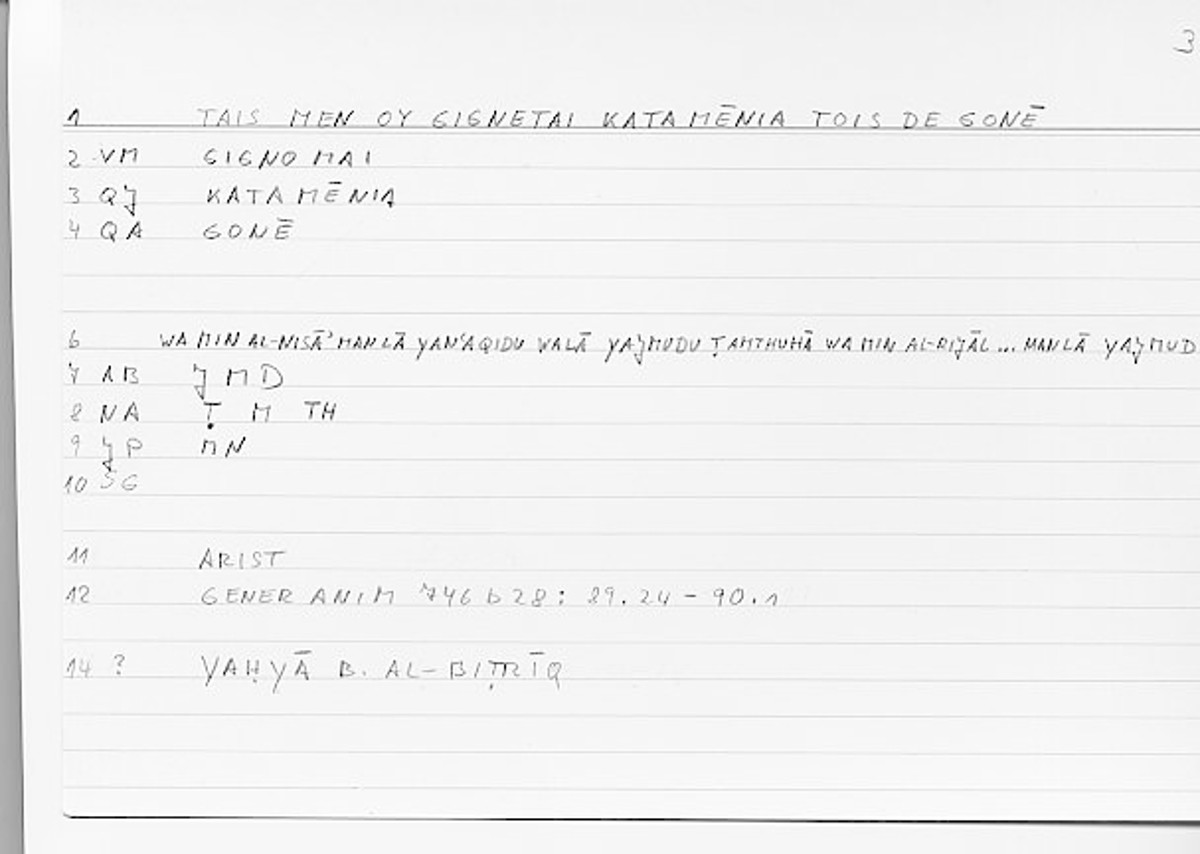 3
1 TAIS MEN OY GIGNETAI KATAMĒNIA TOIS DE GONĒ
2 VM GIGNOMAI
3 QJ KATAMĒNIA
4 QA GONĒ
6 WA MIN AL-NISĀʾ MAN LĀ YANʿAQIDU WALĀ YAJMUDU ṬAMTHUHĀ WA MIN AL-RIJĀL ... MAN LĀ YAJMUD
7 AB J M D
8 NA Ṭ M TH
9 JP MN
10 SG
11 ARIST
12 GENER ANIM 746 b 28: 89.24 - 90.1
14 ? YAḤYĀ B. AL-BIṬRĪQ